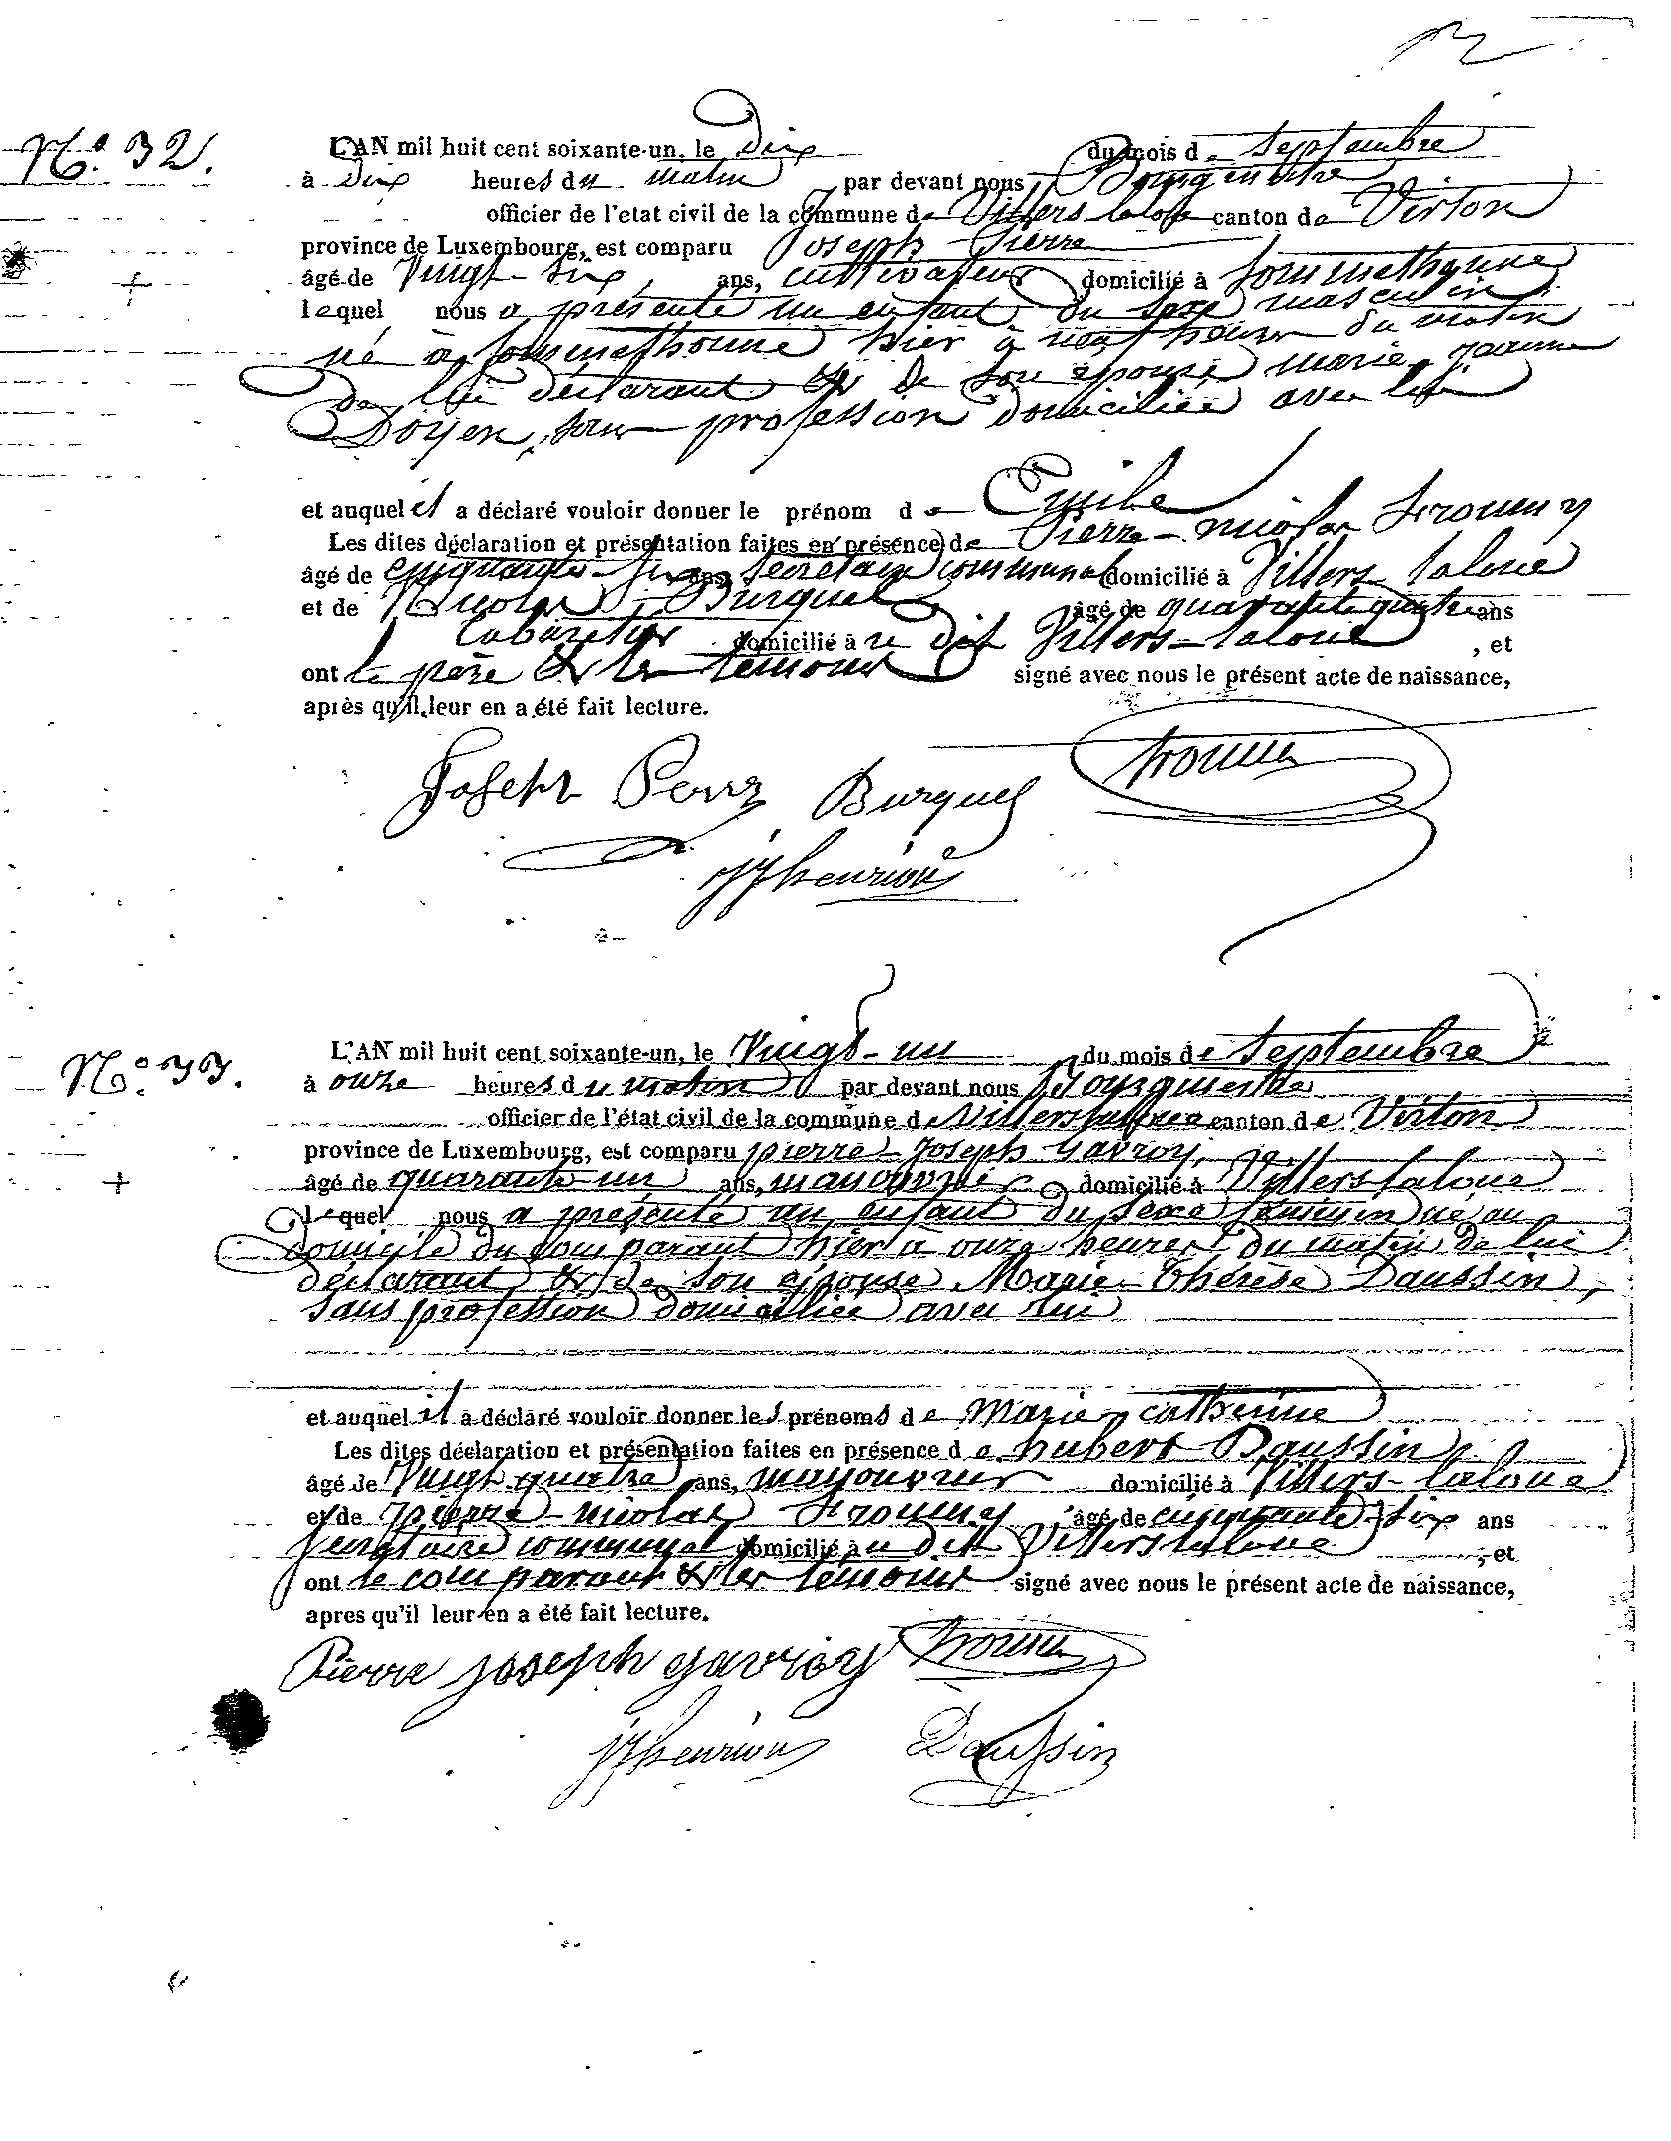 N.º 32.
L'AN mil huit cent soixante-un, le Dix du mois de Septembre
à Dix heures du matin par devant nous Bourgmestre
officier de l'état civil de la commune de Villers laloue canton de Virton
province de Luxembourg, est comparu Joseph Pierre
âgé de Vingt-six, ans, cultivateur domicilié à Sommethonne
lequel nous a présenté un enfant du sexe masculin
né à Sommethonne hier à neuf heures du matin
de lui déclarant & de son épouse marie-jeanne
Doyen, sans profession domiciliée avec lui
et auquel il a déclaré vouloir donner le prénom de Emile
Les dites déclaration et présentation faites en présence de Pierre-nicolas
âgé de cinquante-six ans, Secrétaire communal domicilié à Villers laloue
et de Nicolas Burquel âgé de quarante quatre ans
Cabaretier domicilié à au dit Villers-laloue, et
ont le père & les témoins signé avec nous le présent acte de naissance,
après qu'il leur en a été fait lecture.
Joseph Burquel
N.º 33.
L'AN mil huit cent soixante-un, le Vingt-un du mois de Septembre
à onze heures du matin par devant nous Bourgmestre
officier de l'état civil de la commune de Villers laloue canton de Virton
province de Luxembourg, est comparu pierre-Joseph gavroy,
âgé de quarante-un ans, manouvrier domicilié à Villers laloue
lequel nous a présenté un enfant du sexe féminin né au
domicile du comparant hier à onze heures du matin de lui
déclarant & de son épouse Marie-Thérèse Daussin,
sans profession domiciliée avec lui
et auquel il a déclaré vouloir donner les prénoms de Marie-catherine
Les dites déclaration et présentation faites en présence de hubert Daussin
âgé de Vingt quatre ans, manouvrier domicilié à Villers-laloue
et de pierre-nicolas âgé de cinquante-six ans
Secrétaire communal domicilié à au dit Villers laloue, et
ont le comparant & les témoins signé avec nous le présent acte de naissance,
apres qu'il leur en a été fait lecture.
Pierre joseph gavroy
Daussin